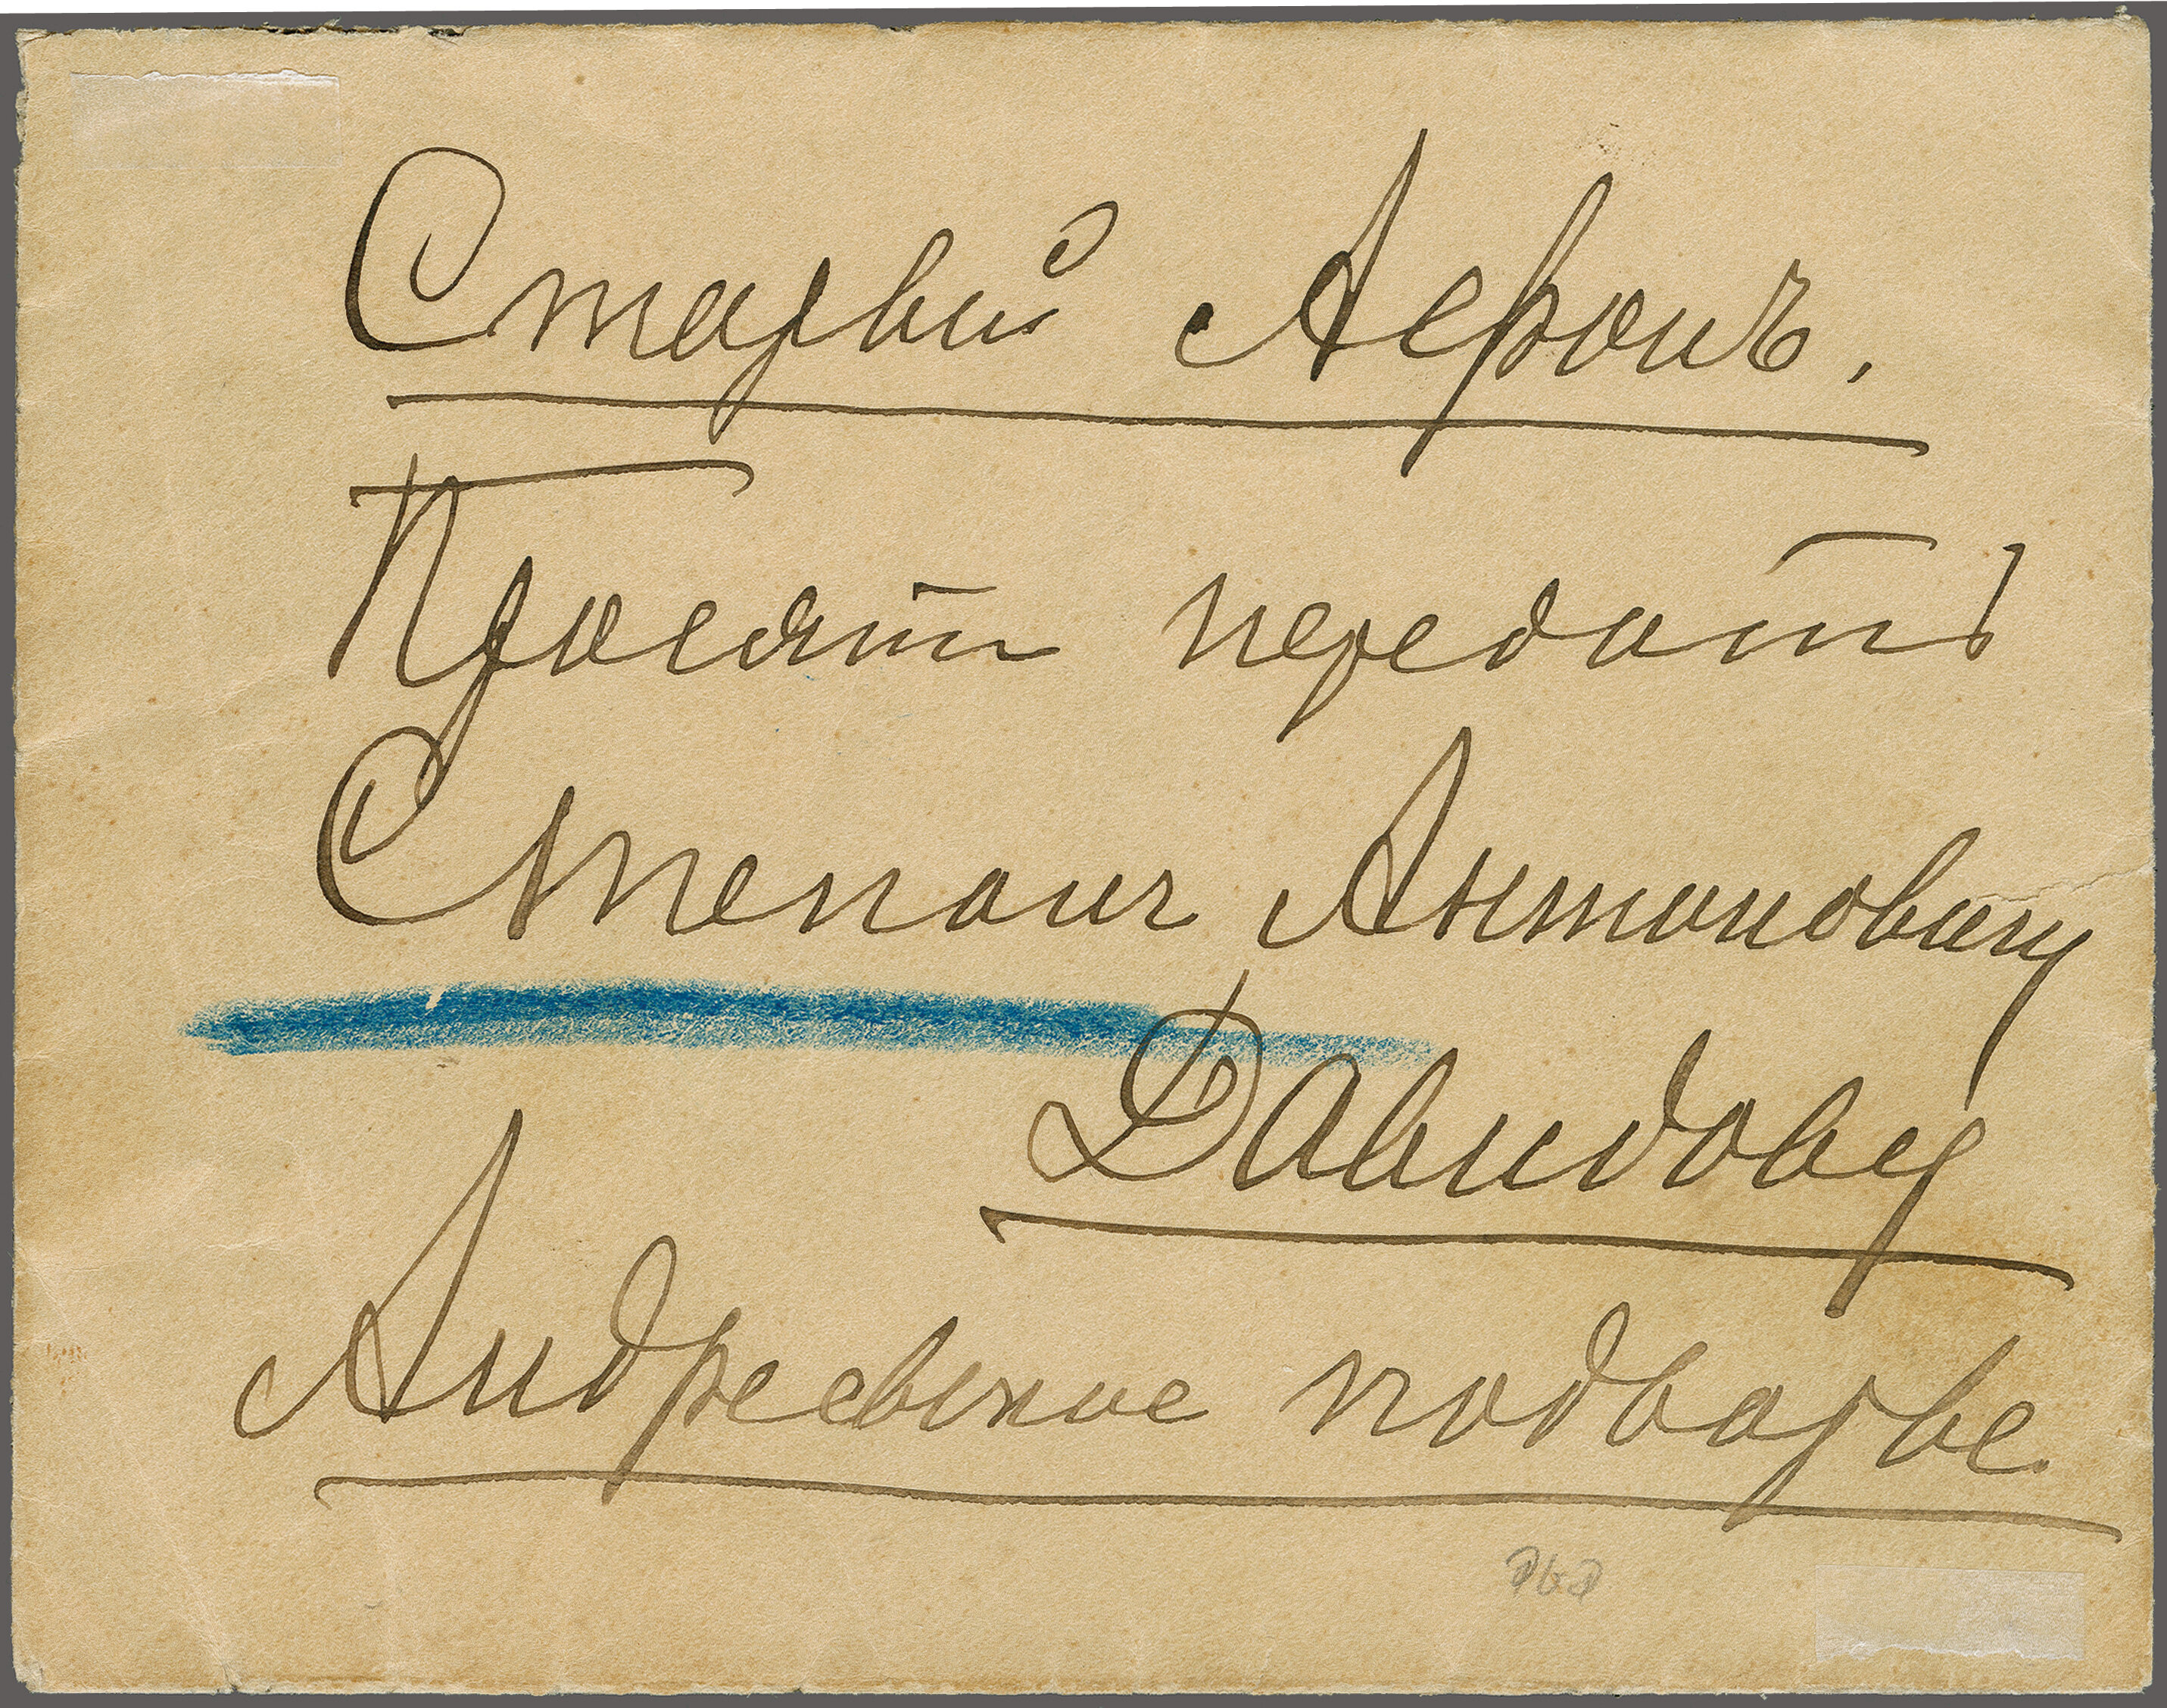 Старый Афонъ.
Просят передать
Степану Антоновичу
Давидову
Андреевское подворье.